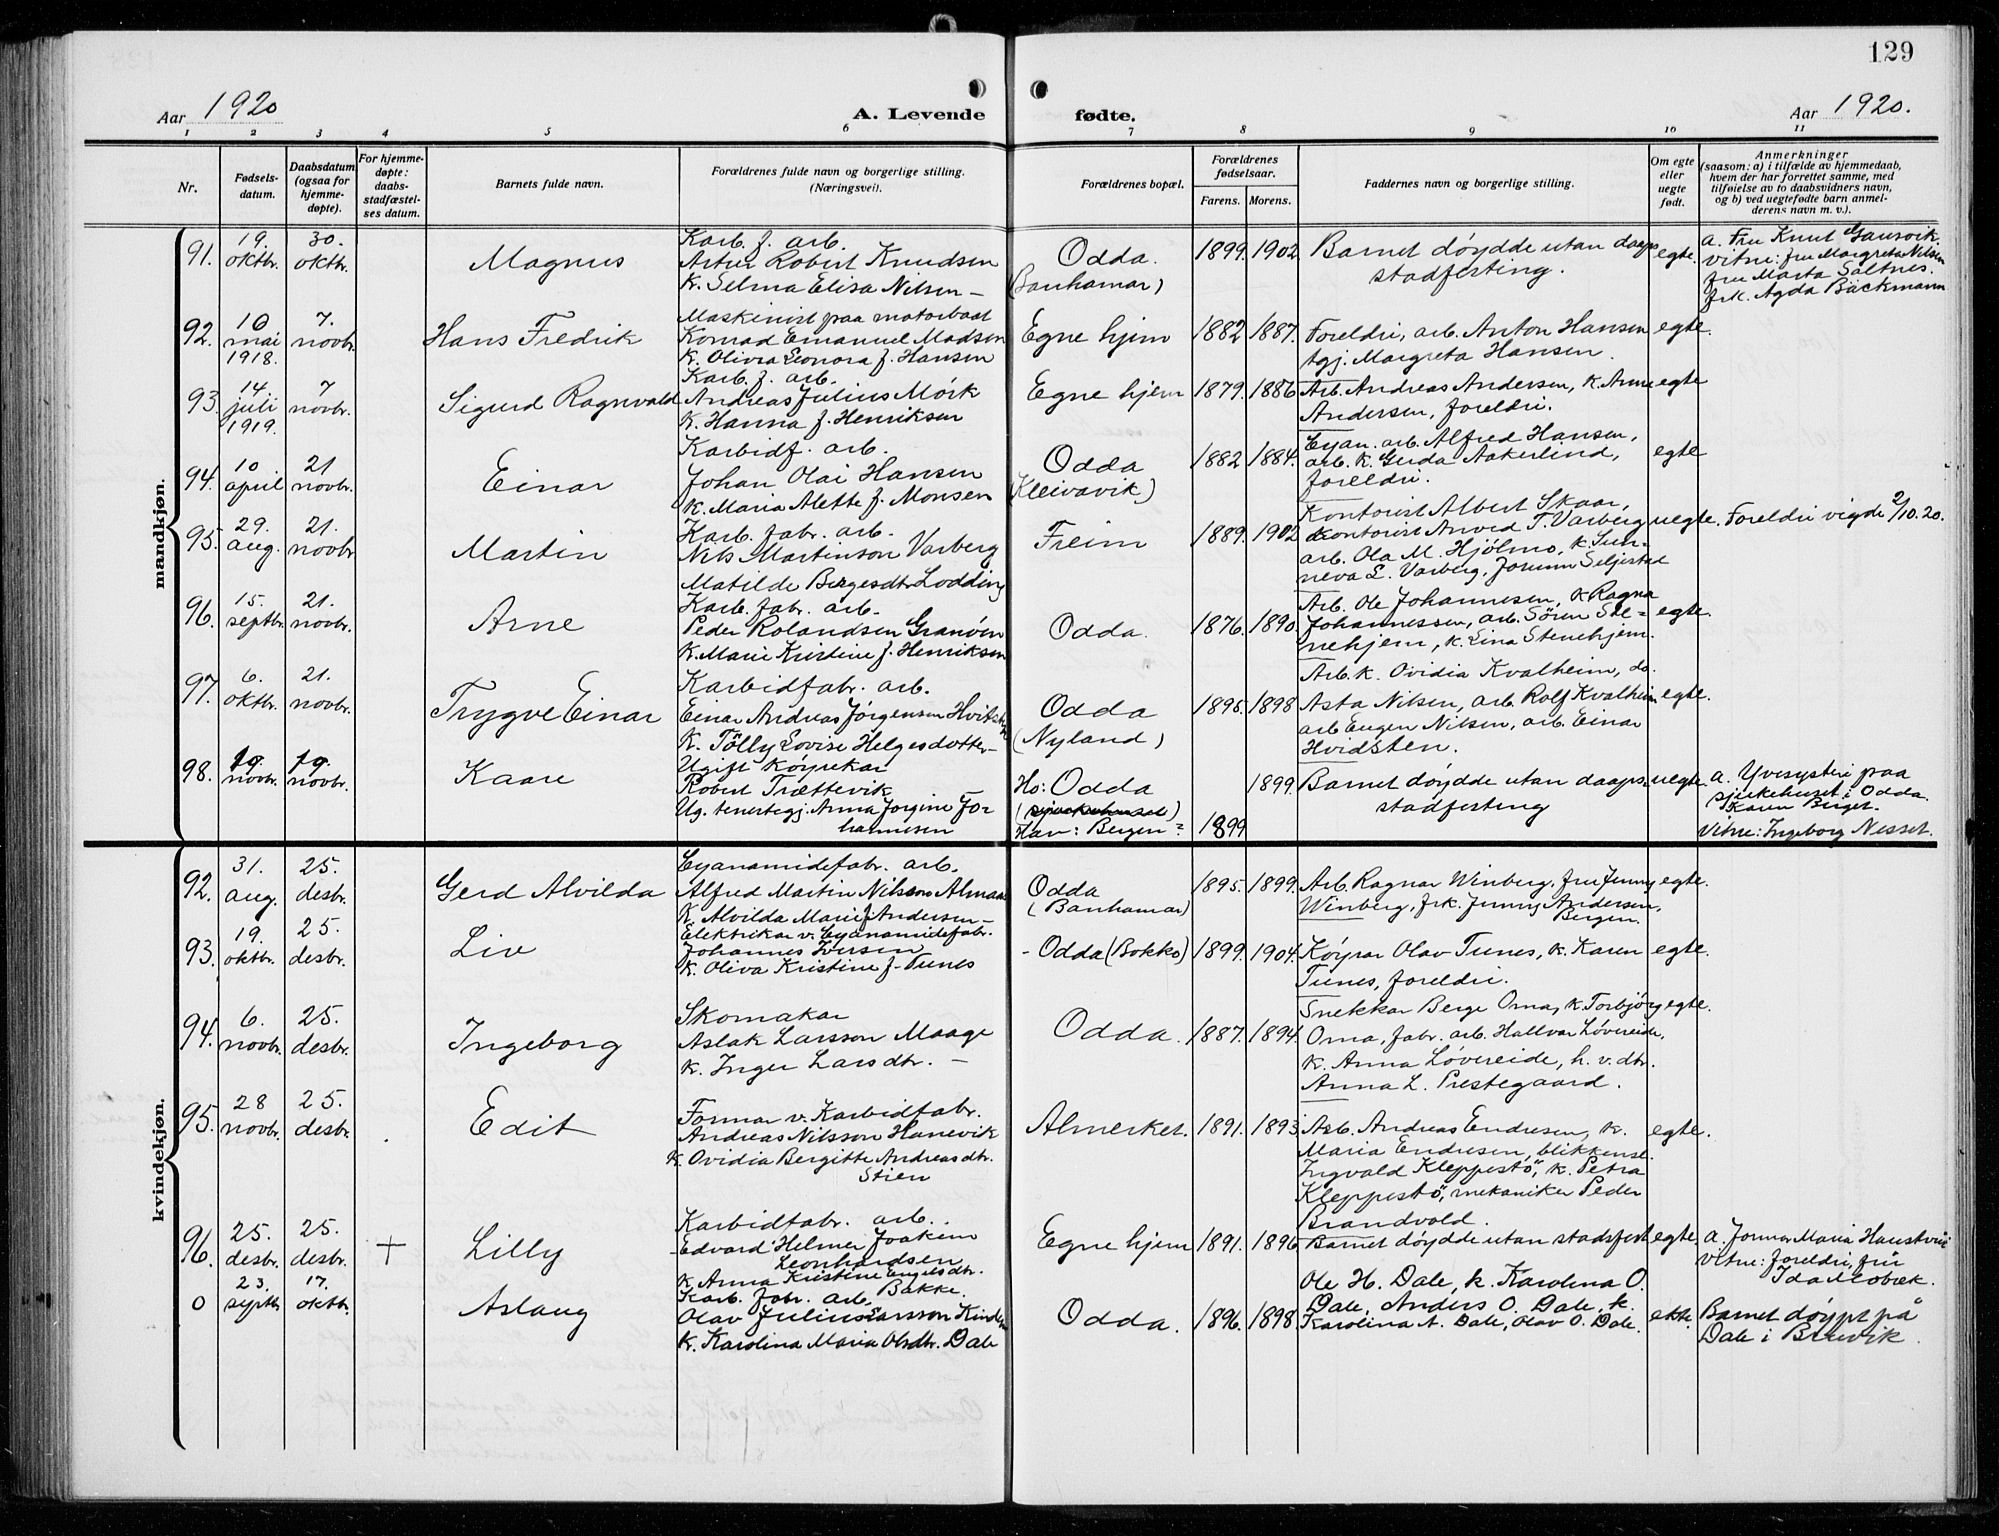 129
Aar 1920
A. Levende
fødte.
Aar 1920.
1 2 3 4 5 6 7 8 9 10 11
Nr.
Fødsels-
datum.
Daabsdatum
(ogsaa for
hjemme-
døpte).
For hjemme-
døpte:
daabs-
stadfæstel-
ses datum.
Barnets fulde navn.
Forældrenes fulde navn og borgerlige stilling.
(Næringsvei).
Forældrenes bopæl.
Forældrenes
fødselsaar.
Farens. Morens.
Faddernes navn og borgerlige stilling.
Om egte
eller
uegte
født.
Anmerkninger
(saasom: a) i tilfælde av hjemmedaab,
hvem der har forrettet samme, med
tilføielse av to daabsvidners navn,
og b) ved uegtefødte barn anmel-
derens navn m. v.).
mandkjøn.
91.
19.
oktbr.
30.
oktbr.
Magnus
Karb. f. arb.
Artur Robert Knudsen
k. Selma Elisa Nilsen –
Odda.
(Banhamar)
1899. 1902
Barnet døydde utan daaps
stadfesting.
egte.
a. Fru Knut Gausvik.
vitne: fru Margreta Nilsen
fru Marta Saltnes.
frk. Agda Bäckmann
92.
16
mai
1918.
7.
novbr.
Hans Fredrik
Maskinist paa motorbaat
Konrad Emanuel Madsen
k. Olivia Leonora f. Hansen
Egne hjem
1882 1887.
Foreldri, arb. Anton Hansen
tgj. Margreta Hansen.
egte.
93.
14
juli
1919.
7
novbr.
Sigurd Ragnvald
Karb. f. arb.
Andreas Julius Mörk
k. Hanna f. Henriksen
Egne hjem
1879. 1886
Arb. Andreas Andersen, k. Anne
Andersen, foreldri.
egte
94.
10
april
21
novbr.
Einar
Karbidf. arb.
Johan Olai Hansen
k. Maria Alette f. Monsen
Odda
(Kleivavik)
1882 1884.
Cyan. arb. Alfred Hansen,
arb. k. Gerda Aakerlind,
foreldri.
egte
95.
29.
aug.
21.
novbr
Martin
Karb. fabr. arb.
Nils Martinson Varberg
Matilde Bergesdtr Lodding
Freim
1889. 1902
Kontorist Albert Skaar,
kontorist Anved T. Varberg
arb. Ola M. Hjølmo, k. Sun-
neva L. Varberg, Jorunn Seljestad
uegte.
Foreldri vigde 2/10. 20.
96.
15.
septbr.
21.
novbr.
Arne
Karb. fabr. arb.
Peder Rolandsen Granöien
k. Marie Kristine f. Henriksen
Odda.
1876. 1890.
Arb. Ole Johannesen, k Ragna
Johannessen, arb. Sören Ste=
nehjem, k. Lina Stenehjem.
egte.
97.
6.
oktbr.
21.
novbr.
Trygve Einar
Karbidfabr. arb.
Einar Andreas Jørgensen Hvitsten
k. Tölly Lovise Helgesdotter –
Odda
(Nyland)
1895. 1898
Arb. k. Ovidia Kvalheim, do.
Asta Nilsen, arb. Rolf Kvalheim
arb Eugen Nilsen, arb. Einar
Hvidsten.
egte.
98.
19.
novbr.
19.
novbr.
Kaare
Ugift køyrekar
Robert Trættevik
Ug. tenestegj. Anna Jorgine Jo-
hannesen
Ho: Odda
(sjuekehuset)
Han: Bergen?
1899
1899.
Barnet døydde utan daaps-
stadfesting
uegte.
a. Yvesysteri paa
sjukehuset i Odda.
Karen Berget.
Vitne: Ingeborg Nesset.
kvindekjøn.
92.
31.
aug.
25.
desbr.
Gerd Alvilda
Cyanamidefabr. arb.
Alfred Martin Nilsson Almaas
k. Alvilda Marie f. Andersen –
Odda
(Banhamar)
1895. 1899.
Arb. Ragnar Winberg, fru Jenny
Winberg, frk. Jenny Andersen,
Bergen.
egte.
93.
19.
oktbr.
25.
desbr.
Liv
Elektrikar v. Cyanamidefabr.
Johannes Iversen
k. Oliva Kristine f. Tunes
- Odda (Bokko)
1899. 1904.
Køyrar Olav Tunes, k. Karen
Tunes, foreldri.
egte.
94.
6.
novbr.
25.
desbr.
Ingeborg
Skomakar
Aslak Larsson Maage
k. Inger Larsdtr. –
Odda.
1887. 1894.
Snekkar Berge Oma, k Torbjør
Oma, fabr. arb. Hallvar Løvereide,
k. Anna Løvereide, h. v. dtr.
Anna L. Prestegaard.
egte.
95.
28
novbr.
25.
desbr.
Edit
Formar v. Karbidfabr.
Andreas Nilsson Hanevik
k. Ovidia Bergitte Andreasdtr.
Stien
Almerket.
1891. 1893.
Arb. Andreas Endresen, k.
Maria Endresen, blikkensl.
Ingvald Kleppestö, k. Petra
Kleppestö, mekaniker Peder
Brandvold.
egte.
96.
25.
desbr.
25.
desbr.
+
Lilly
Karbidfabr. arb.
Edvard Helmer Joakim
Leonhardsen
k. Anna Kristine Engelsdtr.
Bakke.
Egne hjem
1891. 1896
Barnet døydde utan stadfest
egte.
a. Jormor Maria Haustveit
vitne: foreldri, frü
Ida Mobæk.
0
23.
septbr.
17.
oktbr.
Aslaug
Karb. fabr. arb.
Olav Julius Larsson Kindem
k. Karolina Maria Olsdtr. Dale
Odda.
1896. 1898.
Ole H. Dale, k. Karolina O.
Dale, Anders O. Dale, k.
Karolina A. Dale, Olav O. Dale.
ekte.
Barnet døypt på
Dale i Bruvik.